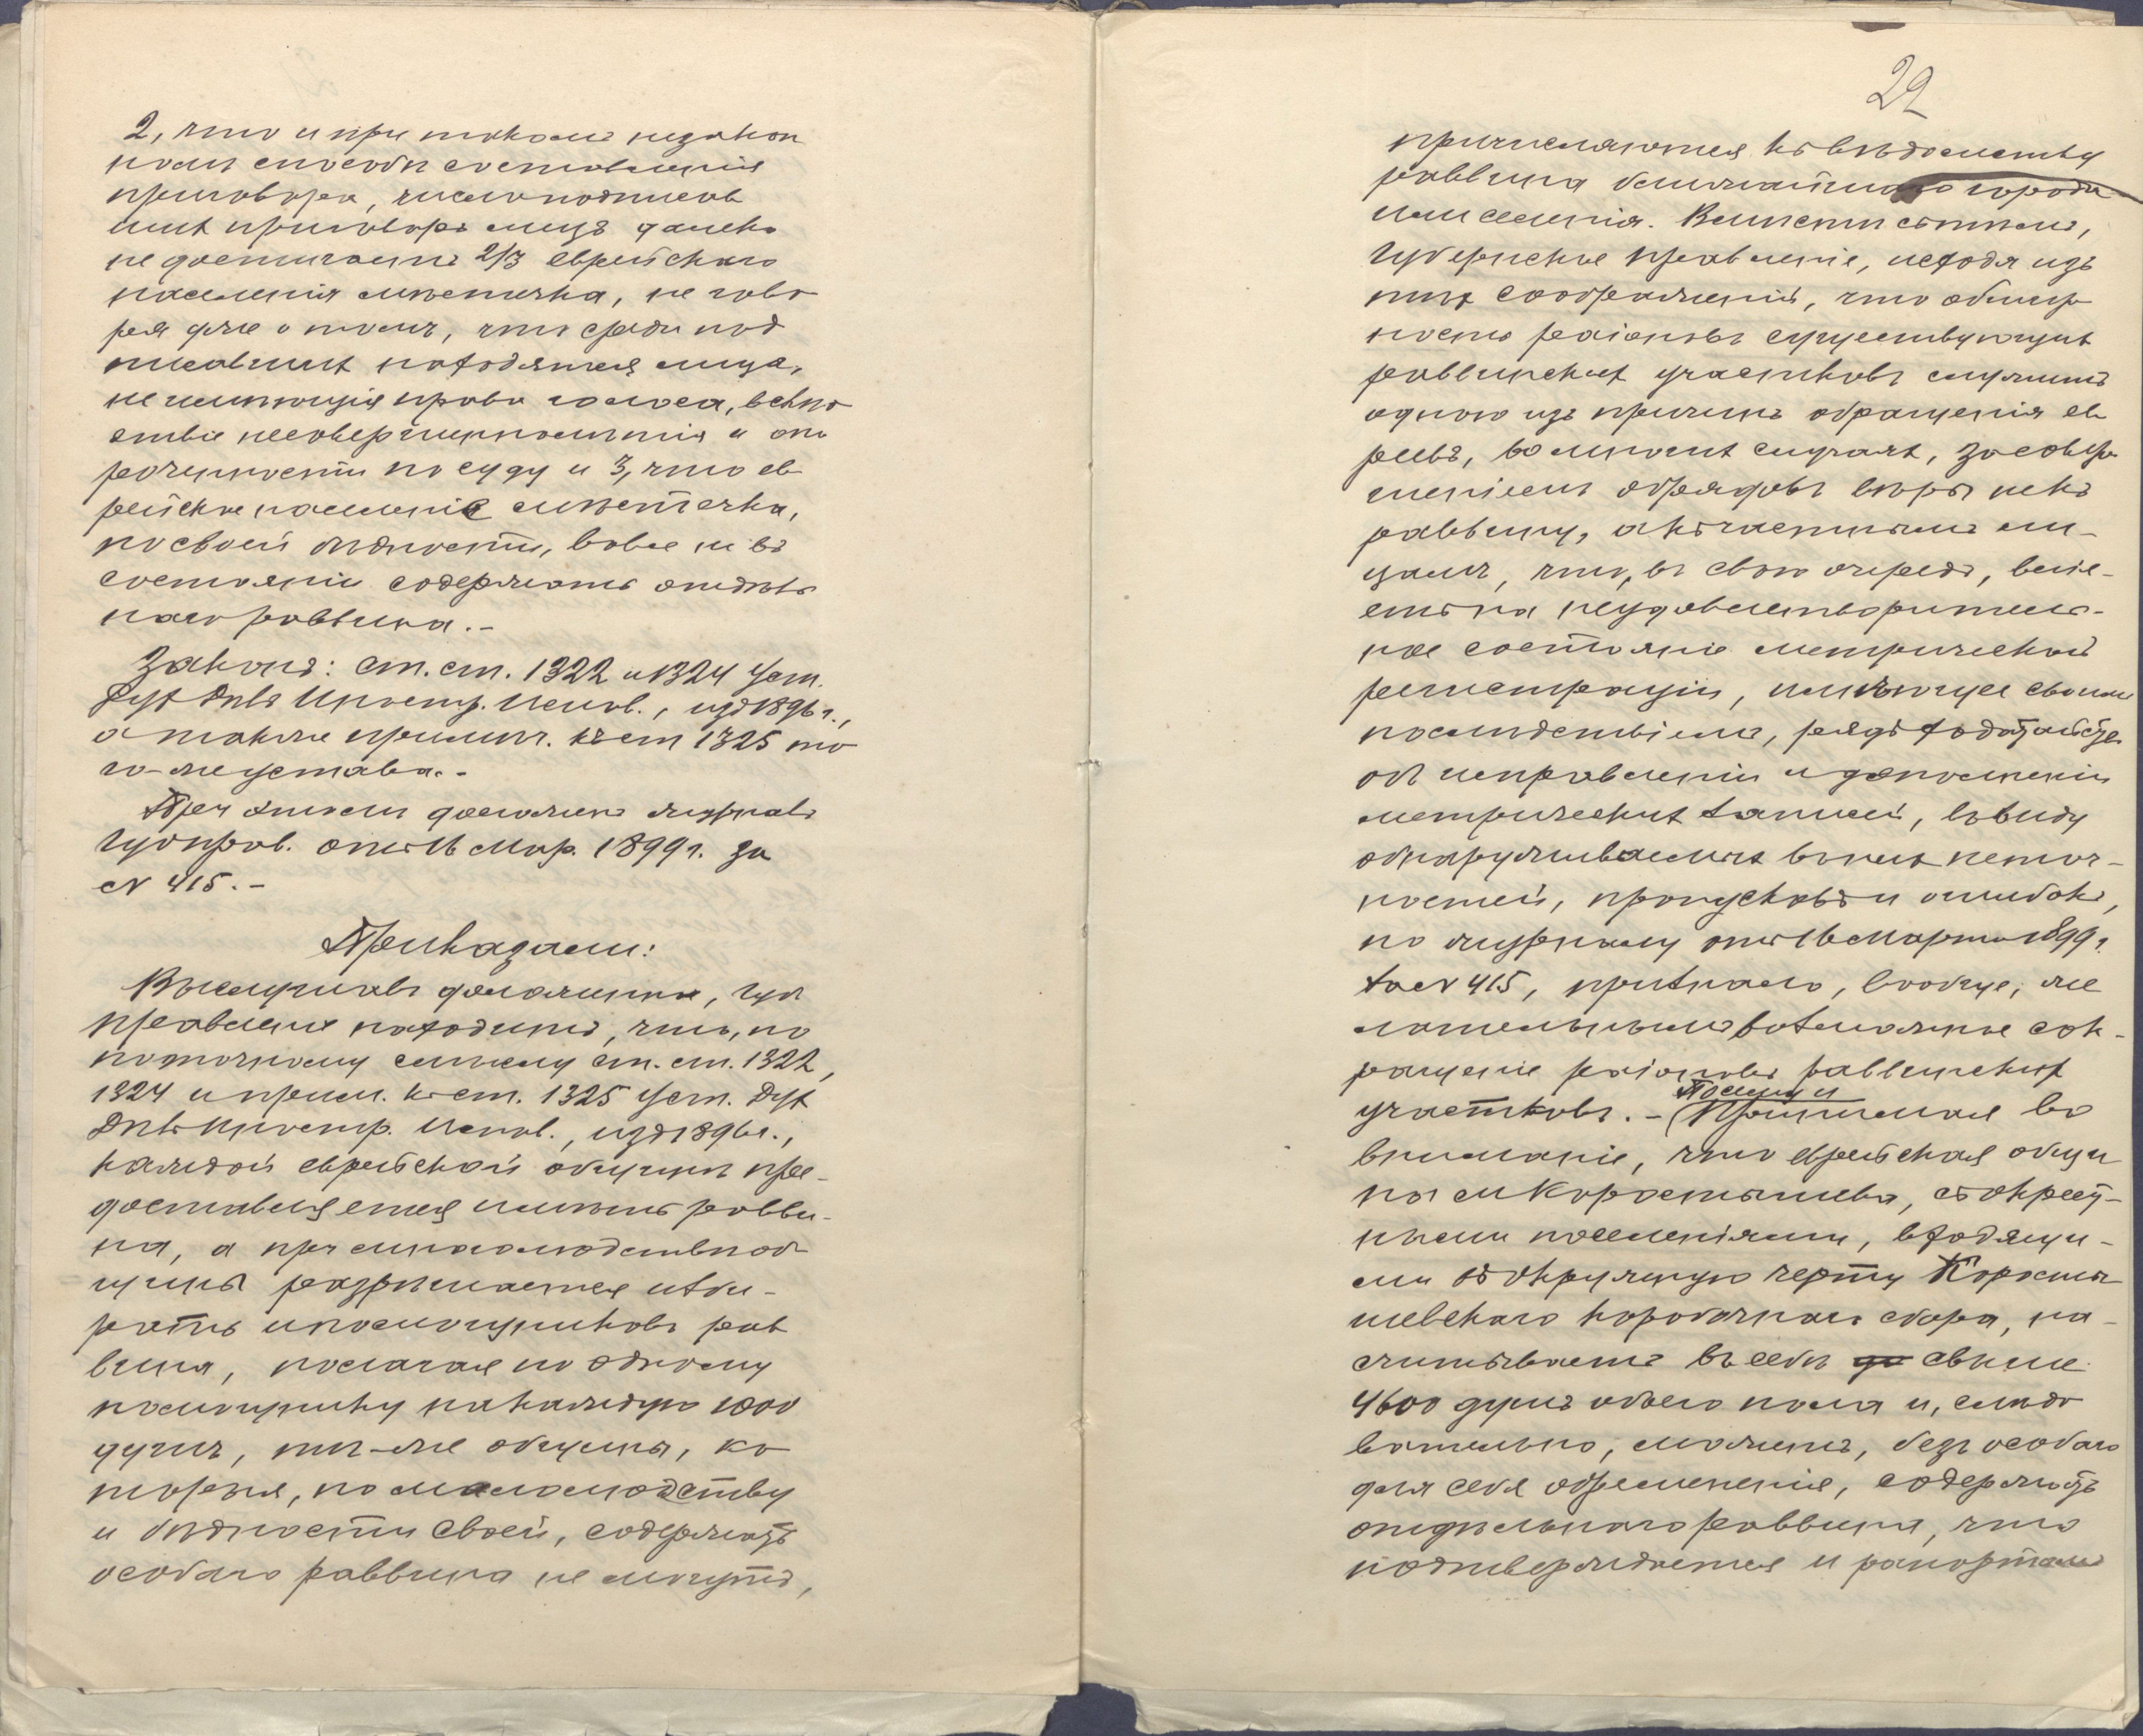 2, что и при такомъ незакон
номъ способѣ составленія
приговора, число подписав
шихъ приговоръ лицъ далеко
не достигаетъ 2/3 еврейскаго
населенія мѣстечка, не гово
ря уже о томъ, что среди под
писавшихъ находятся лица,
не имѣющія права голоса, вслѣд
ствіе несовершеннолѣтія и опо
роченности по суду и 3, что ев
рейское населеніе мѣстечка,
по своей бѣдности, вовсе не въ
состояніи содержать отдѣль
наго раввина.-
Законъ: ст. ст. 1322 и 1324 Уст.
Дух Дѣлъ Иностр. Испов., изд 1896 г.,
а также примѣч. къ ст 1325 то
го-же устава.-
При этомъ доложенъ журналъ
Губ прав. отъ 16 Мар. 1899 г. за
№ 415.-
Приказали:
Выслушавъ доложенное, Губ
правленіе находитъ, что, по
по точному смыслу ст. ст. 1322,
1324 и прим. къ ст. 1325 Уст. Дух
Дѣлъ Иностр. Испов., изд 1896 г.,
каждой еврейской общинѣ пре-
доставляется имѣть равви-
на, а при многолюдствѣ об
щины разрѣшается изби-
рать и помощниковъ рав
вина, полагая по одному
помощнику на каждую 1000
душъ, тѣ-же общины, ко
торыя, по малолюдству
и бѣдности своей, содержать
особаго раввина не могутъ,
22
причисляются къ вѣдомству
раввина ближайшаго города
или селенія. Вмѣстѣ съ тѣмъ,
Губернское правленіе, исходя изъ
тѣхъ соображеній, что обшир
ность раіоновъ существующихъ
раввинскихъ участковъ служитъ
одною изъ причинъ обращенія ев
реевъ, во многихъ случаяхъ, за соверше
ніемъ обрядовъ вѣры не къ
раввину, а къ частнымъ ли-
цамъ, что, въ свою очередь, вліе-
етъ на неудовлетворитель-
ное состояніе метрической
регистраціи, имѣющее своимъ
послѣдствіемъ, рядъ ходатайствъ
объ исправленіи и дополненіи
метрическихъ записей, въ виду
обнаруживаемыхъ въ нихъ неточ-
ностей, пропусковъ и ошибокъ,
по журналу отъ 16 Марта 1899 г.
за № 415, признало, вообще, же
лательнымъ возможное сок-
ращеніе раіоновъ раввинскихъ
Посему и
участковъ.- (Принимая во
вниманіе, что еврейская общи
на м Коростышева, съ окрест-
ными поселеніями, входящи-
ми въ окружную черту Коросты
шевскаго коробочнаго сбора, на-
считываетъ въ себѣ до свыше
4600 душъ обоего пола и, слѣдо
вательно, можетъ, безъ особаго
для себя обремененія, содержать
отдѣльнаго раввина, что
подтверждается и рапортомъ